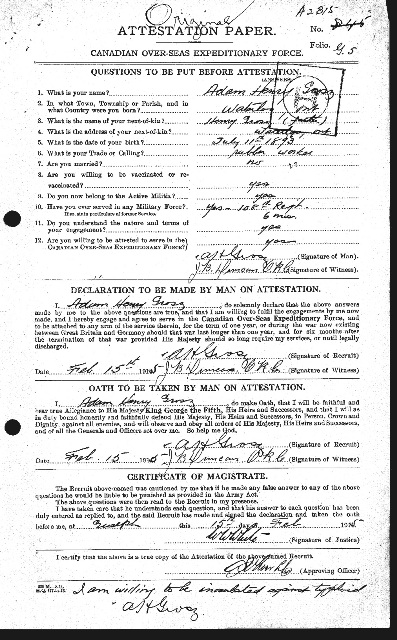 Original
A2815
ATTESTATION PAPER.
No.
Folio.
CANADIAN OVER-SEAS EXPEDITIONARY FORCE.
QUESTIONS TO BE PUT BEFORE ATTESTATION.
(ANSWERS)
1. What is your name? Adam Henry Grosz
2. In what Town, Township or Parish, and in
what Country were you born? Waterloo Ont
3. What is the name of your next-of-kin? Henry Grosz (father)
4. What is the address of your next-of-kin? Waterloo, Ont
5. What is the date of your birth? July 11th 1893
6. What is your Trade or Calling? rubber worker
7. Are you married? no
8. Are you willing to be vaccinated or re-
vaccinated? yes
9. Do you now belong to the Active Militia? yes
10. Have you served in any Military Force? yes - 108th Regt
If so, state particulars of former Service. 6 mos
11. Do you understand the nature and terms of
your engagement? yes
12. Are you willing to be attested to serve in the
CANADIAN OVER-SEAS EXPEDITIONARY FORCE? yes
A H Grosz (Signature of Man).
Duncan (Signature of Witness).
DECLARATION TO BE MADE BY MAN ON ATTESTATION.
I, Adam Henry Grosz, do solemnly declare that the above answers
made by me to the above questions are true, and that I am willing to fulfil the engagements by me now
made, and I hereby engage and agree to serve in the Canadian Over-Seas Expeditionary Force, and
to be attached to any arm of the service therein, for the term of one year, or during the war now existing
between Great Britain and Germany should that war last longer than one year, and for six months after
the termination of that war provided His Majesty should so long require my services, or until legally
discharged.
A H Grosz (Signature of Recruit)
Date Feb. 15th 1915 Duncan (Signature of Witness)
OATH TO BE TAKEN BY MAN ON ATTESTATION.
I, Adam Henry Grosz, do make Oath, that I will be faithful and
bear true Allegiance to His Majesty King George the Fifth, His Heirs and Successors, and that I will as
in duty bound honestly and faithfully defend His Majesty, His Heirs and Successors, in Person, Crown and
Dignity, against all enemies, and will observe and obey all orders of His Majesty, His Heirs and Successors,
and of all the Generals and Officers set over me. So help me God.
A H Grosz (Signature of Recruit)
Date Feb 15 1915 Duncan (Signature of Witness)
CERTIFICATE OF MAGISTRATE.
The Recruit above-named was cautioned by me that if he made any false answer to any of the above
questions he would be liable to be punished as provided in the Army Act.
The above questions were then read to the Recruit in my presence.
I have taken care that he understands each question, and that his answer to each question has been
duly entered as replied to, and the said Recruit has made and signed the declaration and taken the oath
before me, at Guelph this 15th day of Feb 1915
(Signature of Justice)
I certify that the above is a true copy of the Attestation of the above-named Recruit.
(Approving Officer)
I am willing to be innoculated against typhoid
A H Grosz